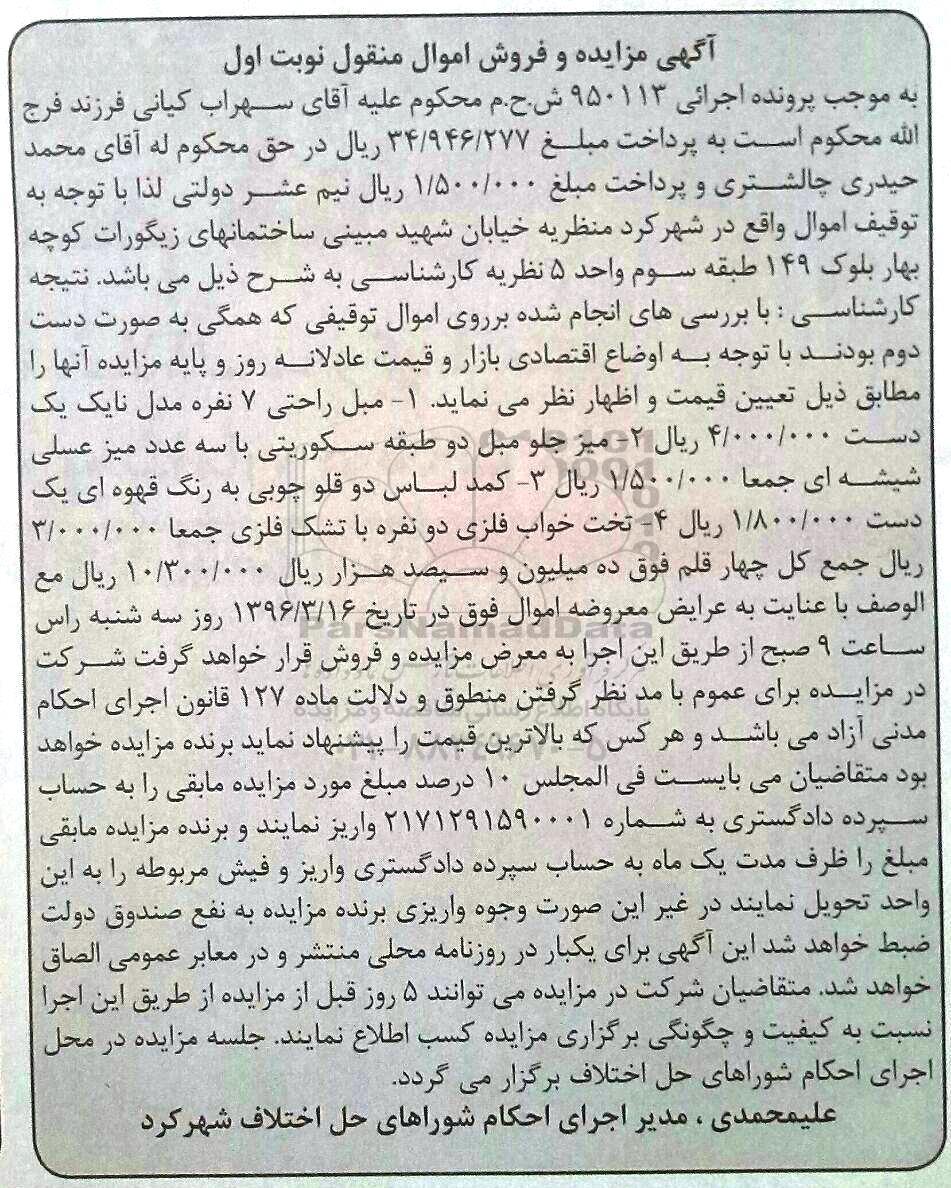 آگهی مزایده و فروش اموال منقول نوبت اول
به موجب پرونده اجرائی ۹۵۰۱۱۳ ش.ح.م محکوم علیه آقای سهراب کیانی فرزند فرج
الله محکوم است به پرداخت مبلغ ۳۴/۹۴۶/۲۷۷ ریال در حق محکوم له آقای محمد
حیدری چالشتری و پرداخت مبلغ ۱/۵۰۰/۰۰۰ ریال نیم عشر دولتی لذا با توجه به
توقیف اموال واقع در شهرکرد منظریه خیابان شهید مبینی ساختمانهای زیگورات کوچه
بهار بلوک ۱۴۹ طبقه سوم واحد ۵ نظریه کارشناسی به شرح ذیل می باشد. نتیجه
کارشناسی : با بررسی های انجام شده برروی اموال توقیفی که همگی به صورت دست
دوم بودند با توجه به اوضاع اقتصادی بازار و قیمت عادلانه روز و پایه مزایده آنها را
مطابق ذیل تعیین قیمت و اظهار نظر می نماید. ۱- مبل راحتی ۷ نفره مدل نایک یک
دست ۴/۰۰۰/۰۰۰ ریال ۲- میز جلو مبل دو طبقه سکوریتی با سه عدد میز عسلی
شیشه ای جمعا ۱/۵۰۰/۰۰۰ ریال ۳- کمد لباس دو قلو چوبی به رنگ قهوه ای یک
دست ۱/۸۰۰/۰۰۰ ریال ۴- تخت خواب فلزی دو نفره با تشک فلزی جمعا ۳/۰۰۰/۰۰۰
ریال جمع کل چهار قلم فوق ده میلیون و سیصد هزار ریال ۱۰/۳۰۰/۰۰۰ ریال مع
الوصف با عنایت به عرایض معروضه اموال فوق در تاریخ ۱۳۹۶/۳/۱۶ روز سه شنبه راس
ساعت ۹ صبح از طریق این اجرا به معرض مزایده و فروش قرار خواهد گرفت شرکت
در مزایده برای عموم با مد نظر گرفتن منطوق و دلالت ماده ۱۲۷ قانون اجرای احکام
مدنی آزاد می باشد و هر کس که بالاترین قیمت را پیشنهاد نماید برنده مزایده خواهد
بود متقاضیان می بایست فی المجلس ۱۰ درصد مبلغ مورد مزایده مابقی را به حساب
سپرده دادگستری به شماره ۲۱۷۱۲۹۱۵۹۰۰۰۱ واریز نمایند و برنده مزایده مابقی
مبلغ را ظرف مدت یک ماه به حساب سپرده دادگستری واریز و فیش مربوطه را به این
واحد تحویل نمایند در غیر این صورت وجوه واریزی برنده مزایده به نفع صندوق دولت
ضبط خواهد شد این آگهی برای یکبار در روزنامه محلی منتشر و در معابر عمومی الصاق
خواهد شد. متقاضیان شرکت در مزایده می توانند ۵ روز قبل از مزایده از طریق این اجرا
نسبت به کیفیت و چگونگی برگزاری مزایده کسب اطلاع نمایند. جلسه مزایده در محل
اجرای احکام شوراهای حل اختلاف برگزار می گردد.
علیمحمدی ، مدیر اجرای احکام شوراهای حل اختلاف شهرکرد
ParsNamadData
پایگاه اطلاع رسانی مناقصه و مزایده